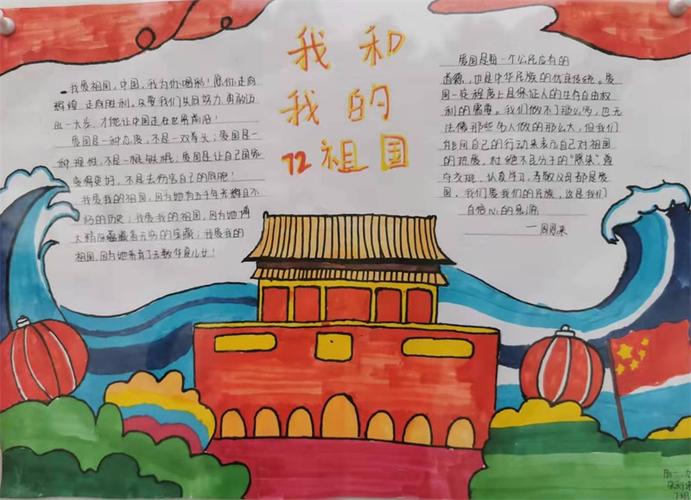 我和
我的
72祖国
我爱祖国,中国,我为你喝彩!愿你走向
辉煌,走向胜利。只要我们生日努力,勇敢迈
出一大步,才能让中国走在世界前沿!
爱国是一种态度,不是一双拳头;爱国是一
种理性,不是一股敏感;爱国是让自己国家
变得更好,不是去伤害自己的同胞!
我爱我的祖国,因为她有五千年
的历史;我爱我的祖国,因为她博
大精深蕴藏着无穷的宝藏;我爱我的
祖国,因为她养育了无数华夏儿女!
爱国是每一个公民应有的
道德,也是中华民族的优良传统。爱
国一定程度上是保证人的生存自由权
利的需要。我们做不了
法像那些伟人做的那么大,但我们
能用自己的行动来表示对祖国
的热爱,杜绝不良分子的
守交规,认真学习,孝敬父母都是爱
国,我们爱我们的民族,这是我们
自信心的泉源
—周恩来